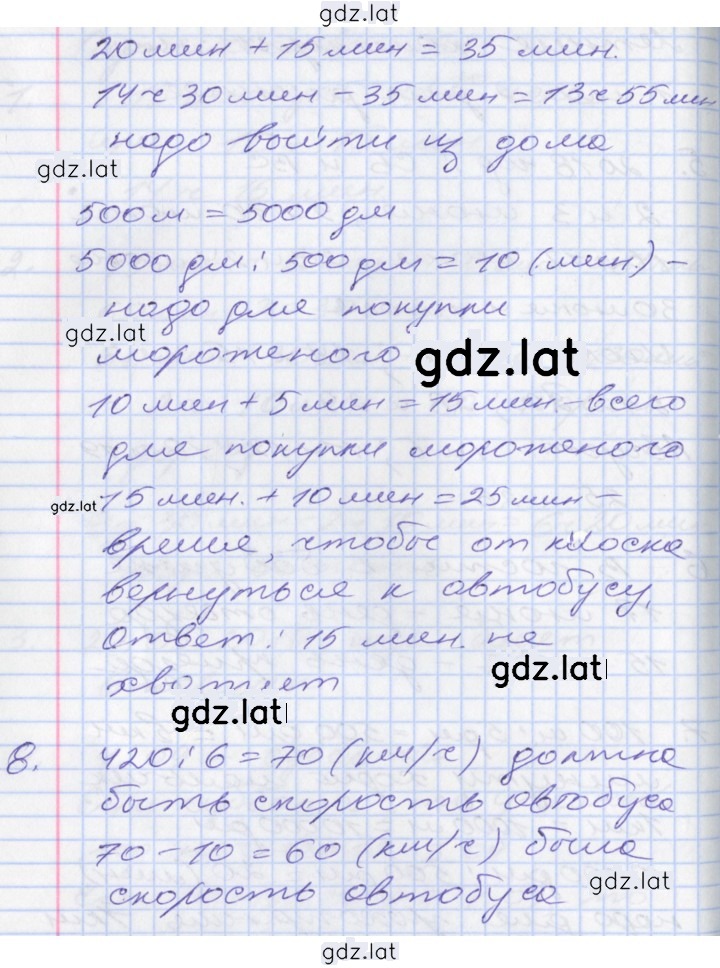 gdz.lat
20 мин + 15 мин = 35 мин.
14 ч 30 мин - 35 мин = 13 ч 55 мин
надо выйти из дома
gdz.lat
500 м = 5000 дм
5000 дм : 500 дм = 10 (мин.) -
надо для покупки
gdz.lat
мороженого
gdz.lat
10 мин + 5 мин = 15 мин. - всего
для покупки мороженого
gdz.lat
15 мин. + 10 мин = 25 мин -
время, чтобы от киоска
вернуться к автобусу.
Ответ: 15 мин. не
gdz.lat
хватает
gdz.lat
8. 420 : 6 = 70 (км/ч) должна
быть скорость автобуса
70 - 10 = 60 (км/ч) была
скорость автобуса
gdz.lat
gdz.lat